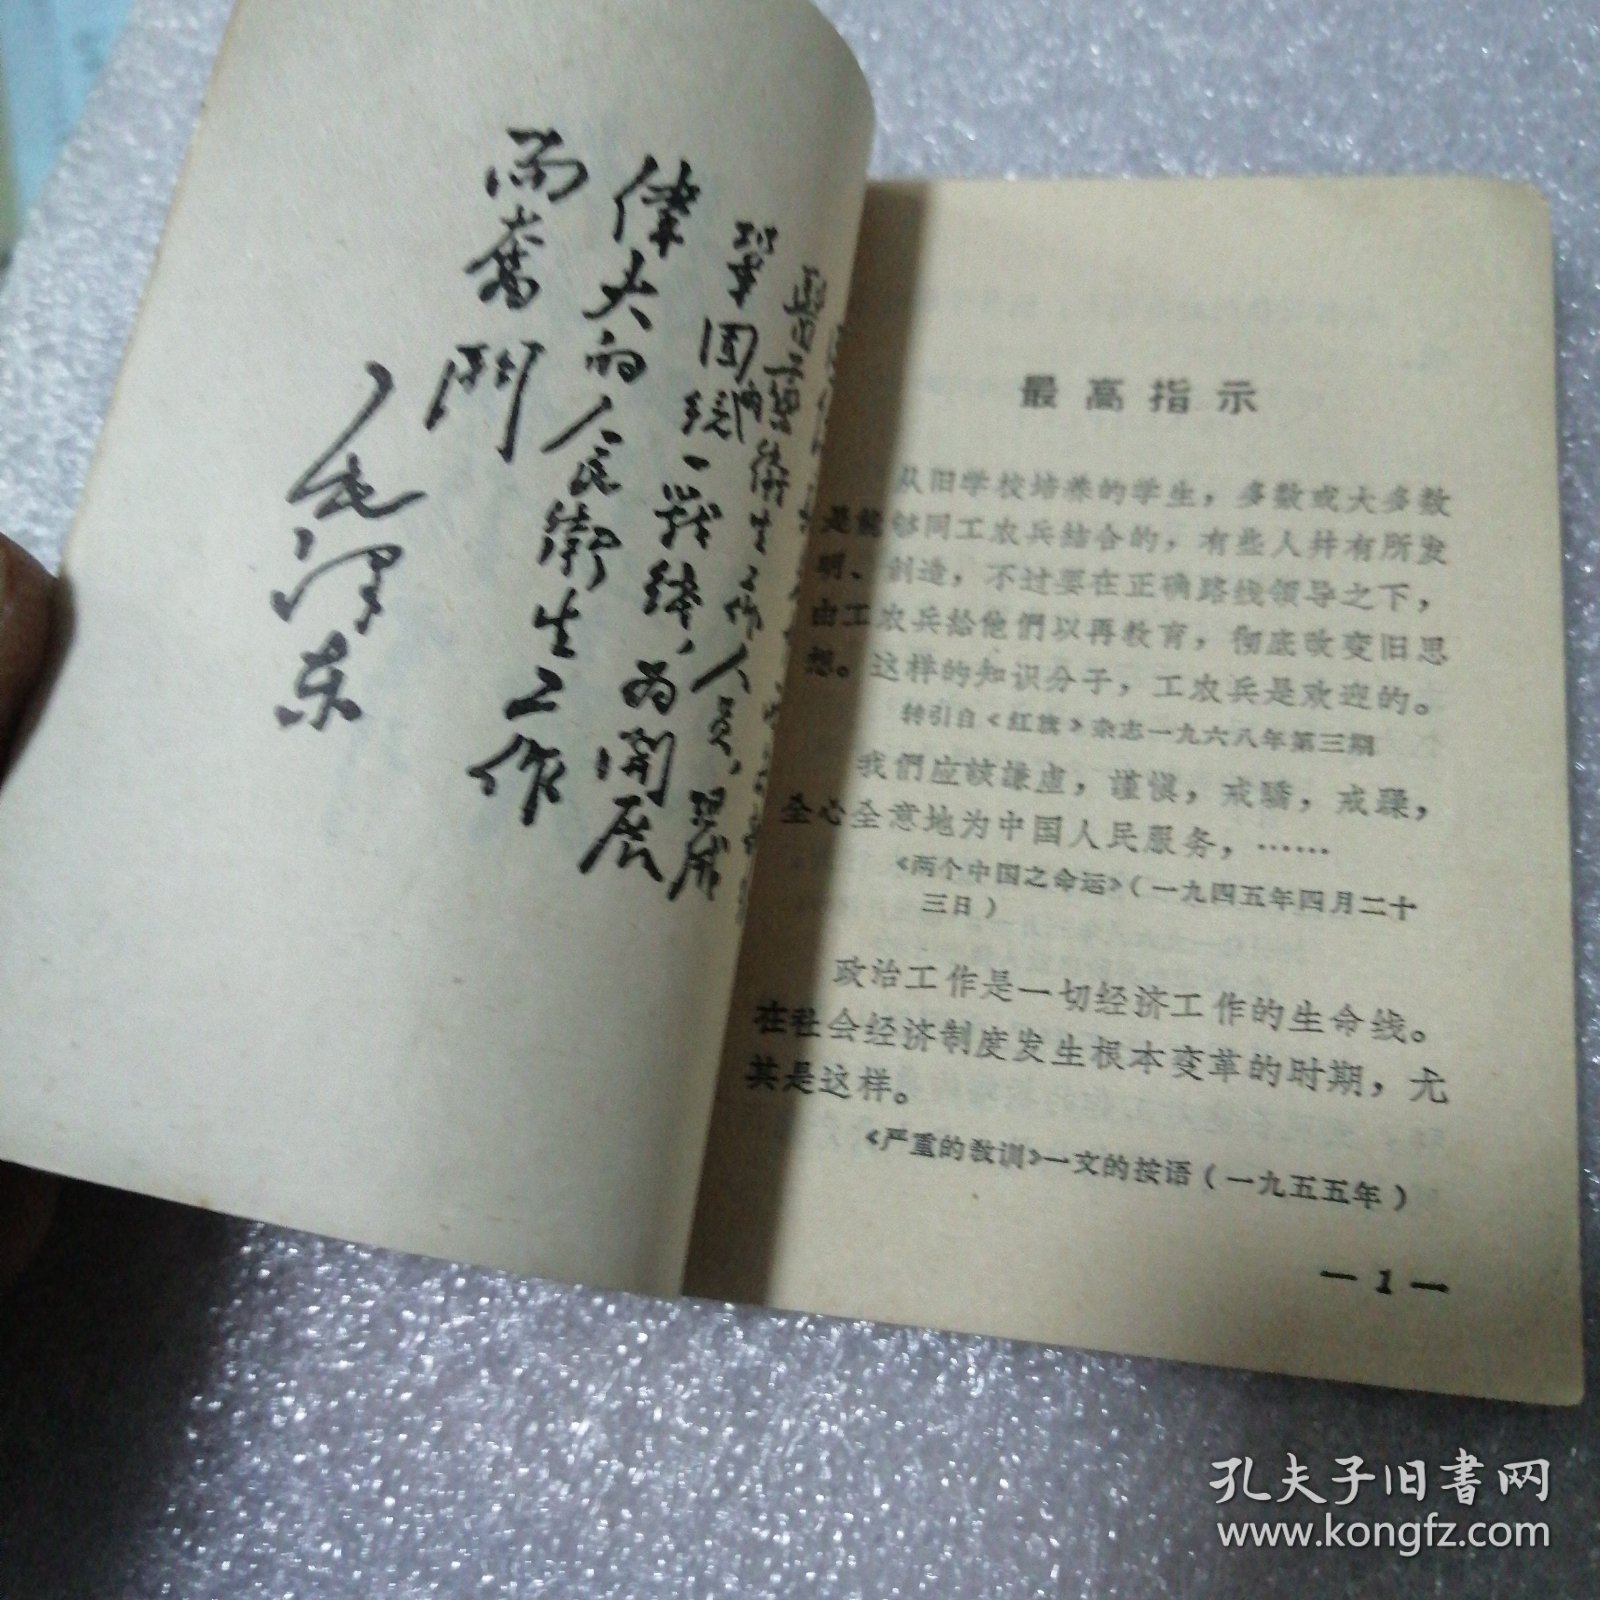 醫藥衛生工作人員,
鞏固統一戰綫,為開展
偉大的人民衛生工作
而奮鬥
毛澤东
最高指示
从旧学校培养的学生，多数或大多数
是能够同工农兵结合的，有些人并有所发
明、创造，不过要在正确路线领导之下，
由工农兵给他們以再教育，彻底改变旧思
想。这样的知识分子，工农兵是欢迎的。
转引自《红旗》杂志一九六八年第三期
我們应该謙虚，謹慎，戒驕，戒躁，
全心全意地为中国人民服务，……
《两个中国之命运》(一九四五年四月二十
三日)
政治工作是一切经济工作的生命线。
在社会经济制度发生根本变革的时期，尤
其是这样。
《严重的教训》一文的按语(一九五五年)
— 1 —
孔夫子旧書网
www.kongfz.com